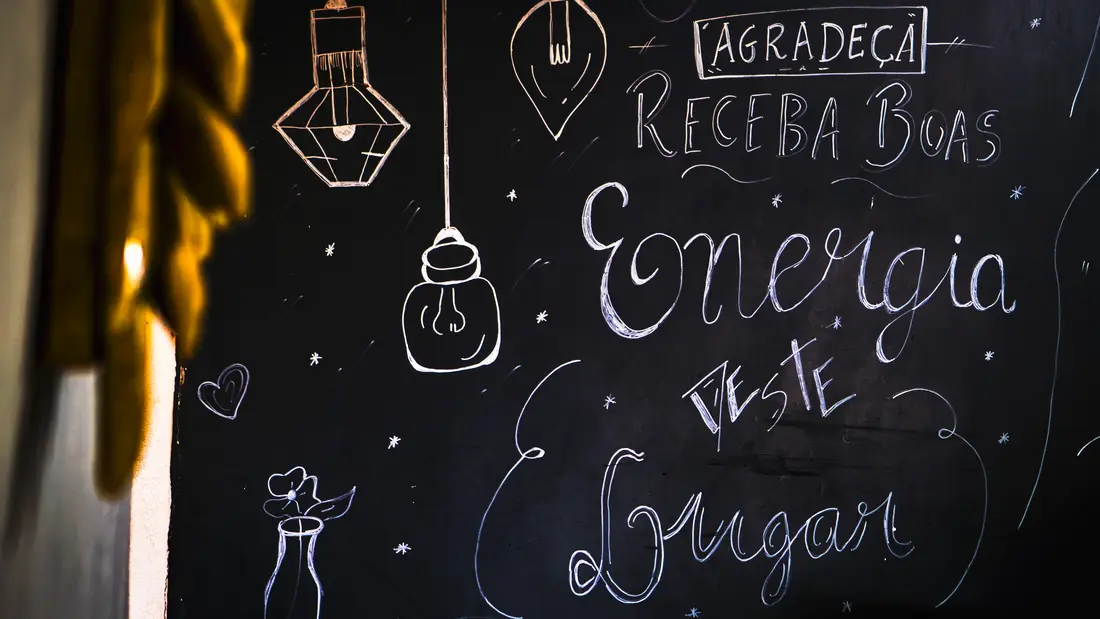 AGRADEÇA
RECEBA BOAS
Energia
DESTE
Lugar